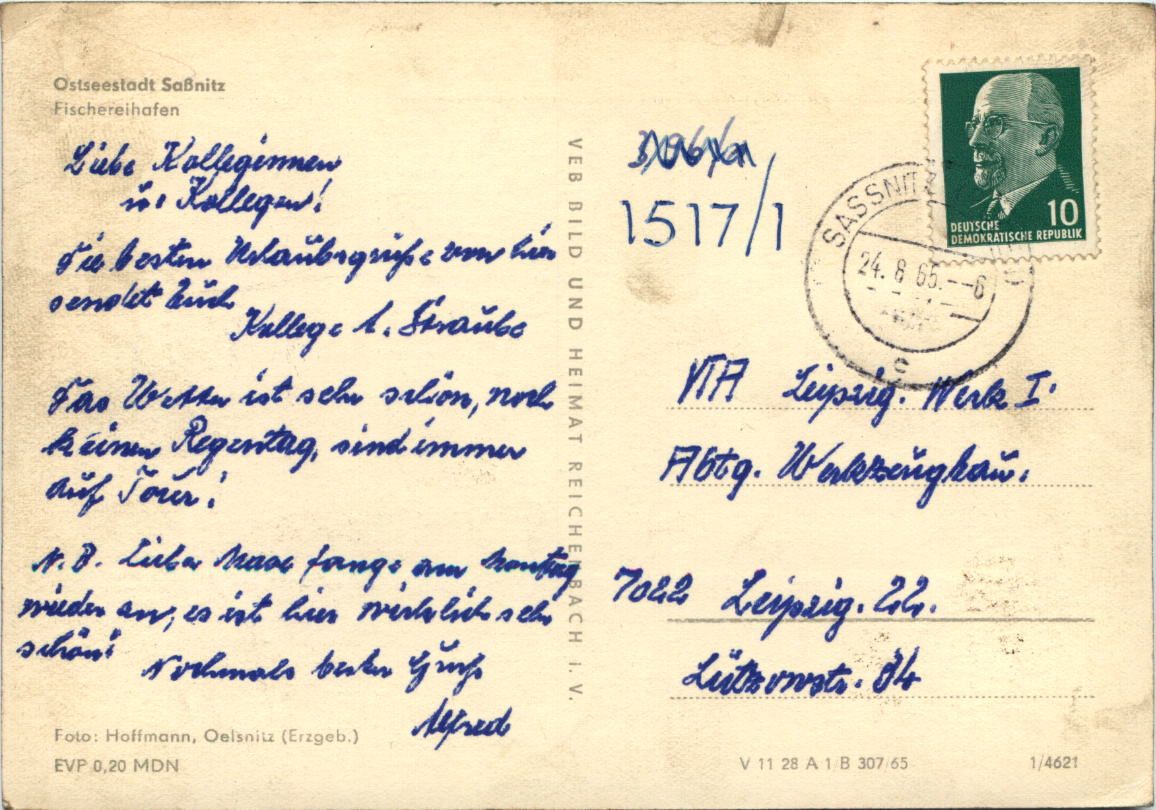 Ostseestadt Saßnitz
Fischereihafen
Liebe Kolleginnen
u. Kollegen!
Die besten Urlaubsgrüße von hier
sendet Euch
Kollege A. Straube
Das Wetter ist sehr schön, noch
keinen Regentag, sind immer
auf Tour!
N. B. Lieber Maxe fange am Montag
wieder an, es ist hier wirklich sehr
schön!
Nochmals besten Gruß
Alfred
Foto: Hoffmann, Oelsnitz (Erzgeb.)
EVP 0,20 MDN
VEB BILD UND HEIMAT REICHENBACH i. V.
1517/1
SASSNITZ
24. 8. 65.--6
c
10
DEUTSCHE
DEMOKRATISCHE REPUBLIK
VTA Leipzig. Werk I.
Abtg. Werkzeugbau.
7022 Leipzig. 22.
Lützowstr. 34
V 11 28 A 1/B 307/65
1/4621